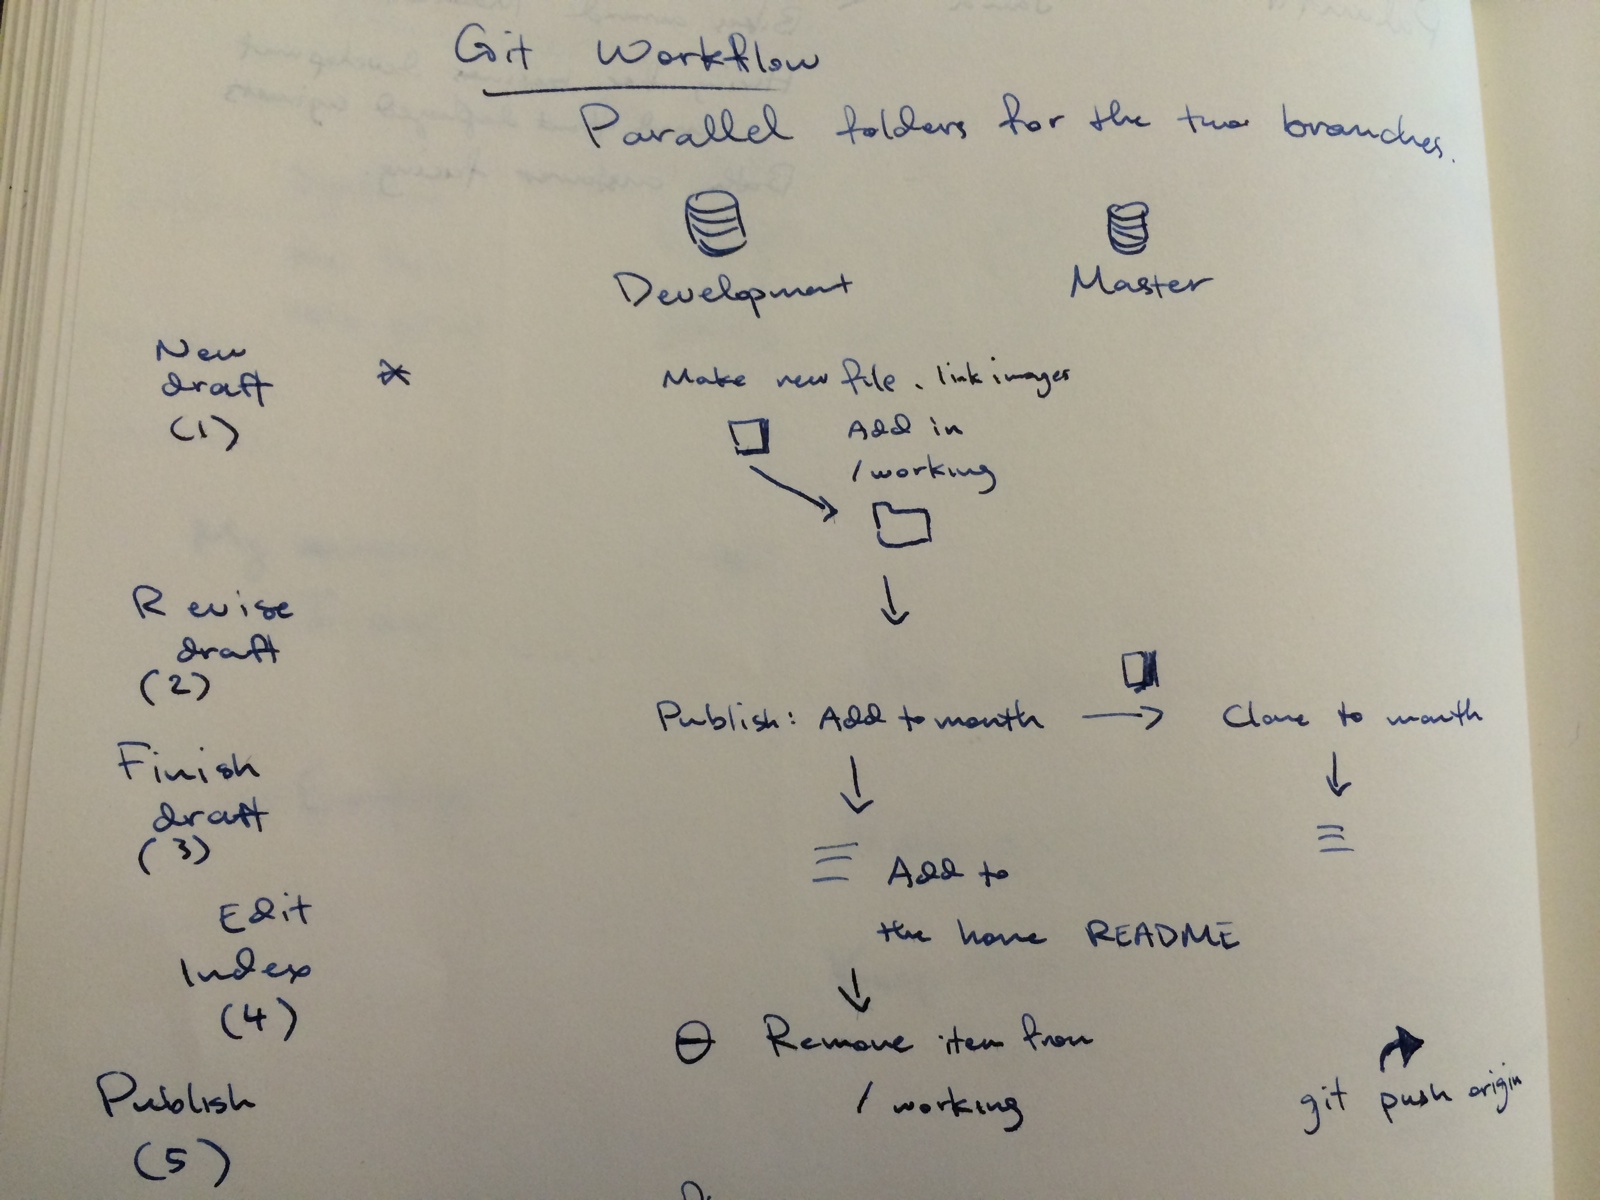 Git Workflow
Parallel folders for the two branches.
Development
Master
New
draft
(1)
Make new file, link images
Add in
/working
Revise
draft
(2)
Publish: Add to month
Clone to month
Finish
draft
(3)
Add to
the home README
Edit
Index
(4)
Remove item from
/working
git push origin
Publish
(5)